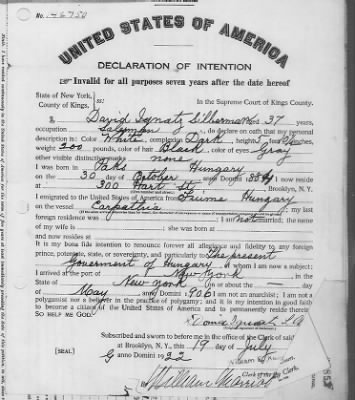 No. 46750
UNITED STATES OF AMERICA
DECLARATION OF INTENTION
Invalid for all purposes seven years after the date hereof
State of New York,
County of Kings, ss:
In the Supreme Court of Kings County.
I, David Ignatz Silberman, aged 37 years,
occupation Salesman, do declare on oath that my personal
description is: Color White, complexion Dark, height feet inches,
weight 200 pounds, color of hair Black, color of eyes Gray
other visible distinctive marks none
I was born in Paks Hungary
on the 30 day of October anno Domini 1884; I now reside
at 300 Hart St., Brooklyn, N. Y.
I emigrated to the United States of America from Fiume Hungary
on the vessel Carpathia; my last
foreign residence was; I am not married; the name
of my wife is; she was born at
and now resides at
It is my bona fide intention to renounce forever all allegiance and fidelity to any foreign
prince, potentate, state, or sovereignty, and particularly to The present
Government of Hungary, of whom I am now a subject;
I arrived at the port of New York, in the
State of New York on or about the day
of May, anno Domini 1906; I am not an anarchist; I am not a
polygamist nor a believer in the practice of polygamy; and it is my intention in good faith
to become a citizen of the United States of America and to permanently reside therein:
SO HELP ME GOD.
Subscribed and sworn to before me in the office of the Clerk of said
at Brooklyn, N. Y., this 19 day of July
[SEAL] anno Domini 1922
Clerk